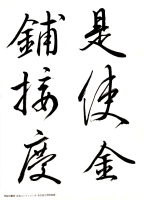 是使金
鋪接慶